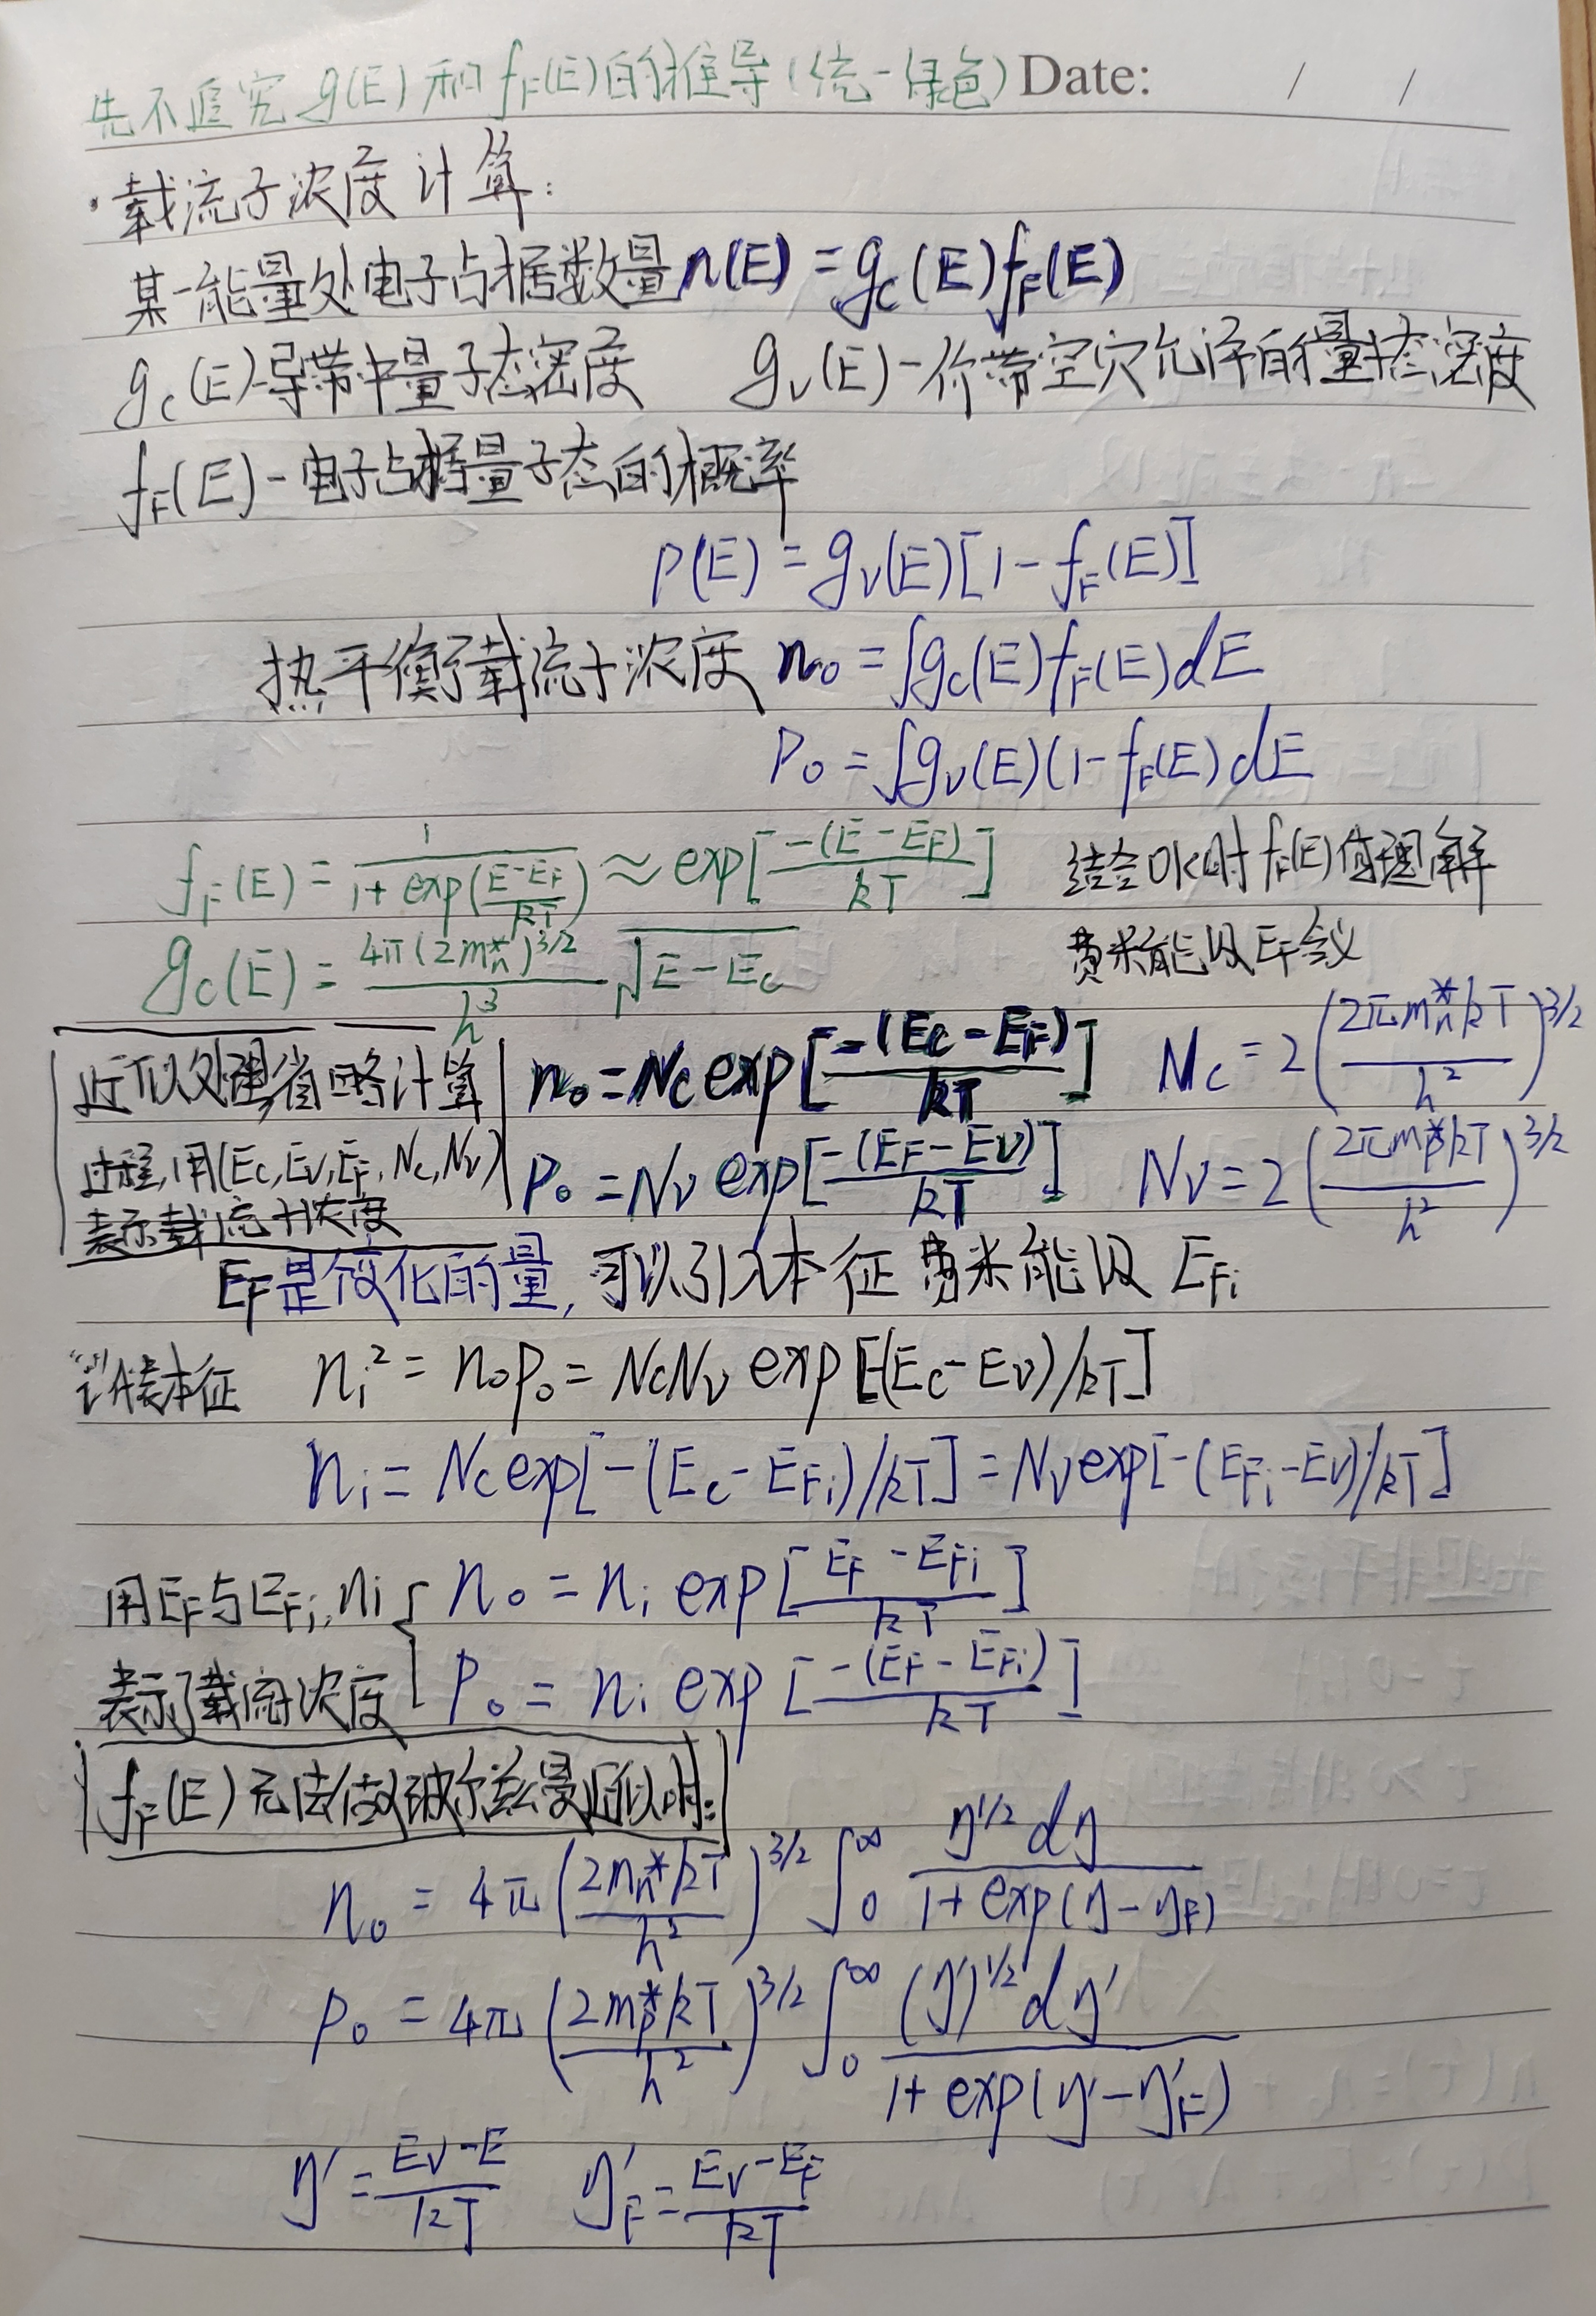 先不追究g(E)和f_F(E)的推导(统一绿色) Date: / /
·载流子浓度计算:
某一能量处电子占据数量n(E) = g_c(E)f_F(E)
g_c(E)-导带中量子态密度 g_v(E)-价带空穴允许的量子态密度
f_F(E)-电子占据量子态的概率
p(E) = g_v(E)[1-f_F(E)]
热平衡载流子浓度 n₀ = ∫g_c(E)f_F(E)dE
P₀ = ∫g_v(E)(1-f_F(E)dE
f_F(E) = 1/(1+exp((E-E_F)/kT)) ≈ exp[-(E-E_F)/kT] 结合0K时f_F(E)值理解
g_c(E) = 4π(2m_n*)^{3/2}/h³ √(E-E_c) 费米能级E_F含义
近似处理省略计算 n₀=N_c exp[-(E_c-E_F)/kT] N_c=2(2πm_n*kT/h²)^{3/2}
过程,用(E_c,E_v,E_F,N_c,N_v) P₀=N_v exp[-(E_F-E_v)/kT] N_v=2(2πm_p*kT/h²)^{3/2}
表示载流子浓度
E_F是变化的量,可以引入本征费米能级 E_Fi
"i"代表本征 n_i²=n₀p₀=N_cN_v exp[-(E_c-E_v)/kT]
n_i=N_c exp[-(E_c-E_Fi)/kT]=N_v exp[-(E_Fi-E_v)/kT]
用E_F与E_Fi,n_i { n₀=n_i exp[(E_F-E_Fi)/kT]
表示了载流子浓度 P₀=n_i exp[-(E_F-E_Fi)/kT]
f_F(E)无法做玻尔兹曼近似时:
n₀=4π(2m_n*kT/h²)^{3/2} ∫₀^∞ η^{1/2}dη/(1+exp(η-η_F))
p₀=4π(2m_p*kT/h²)^{3/2} ∫₀^∞ (η')^{1/2}dη'/(1+exp(η'-η'_F))
η'=(E_v-E)/kT η'_F=(E_v-E_F)/kT